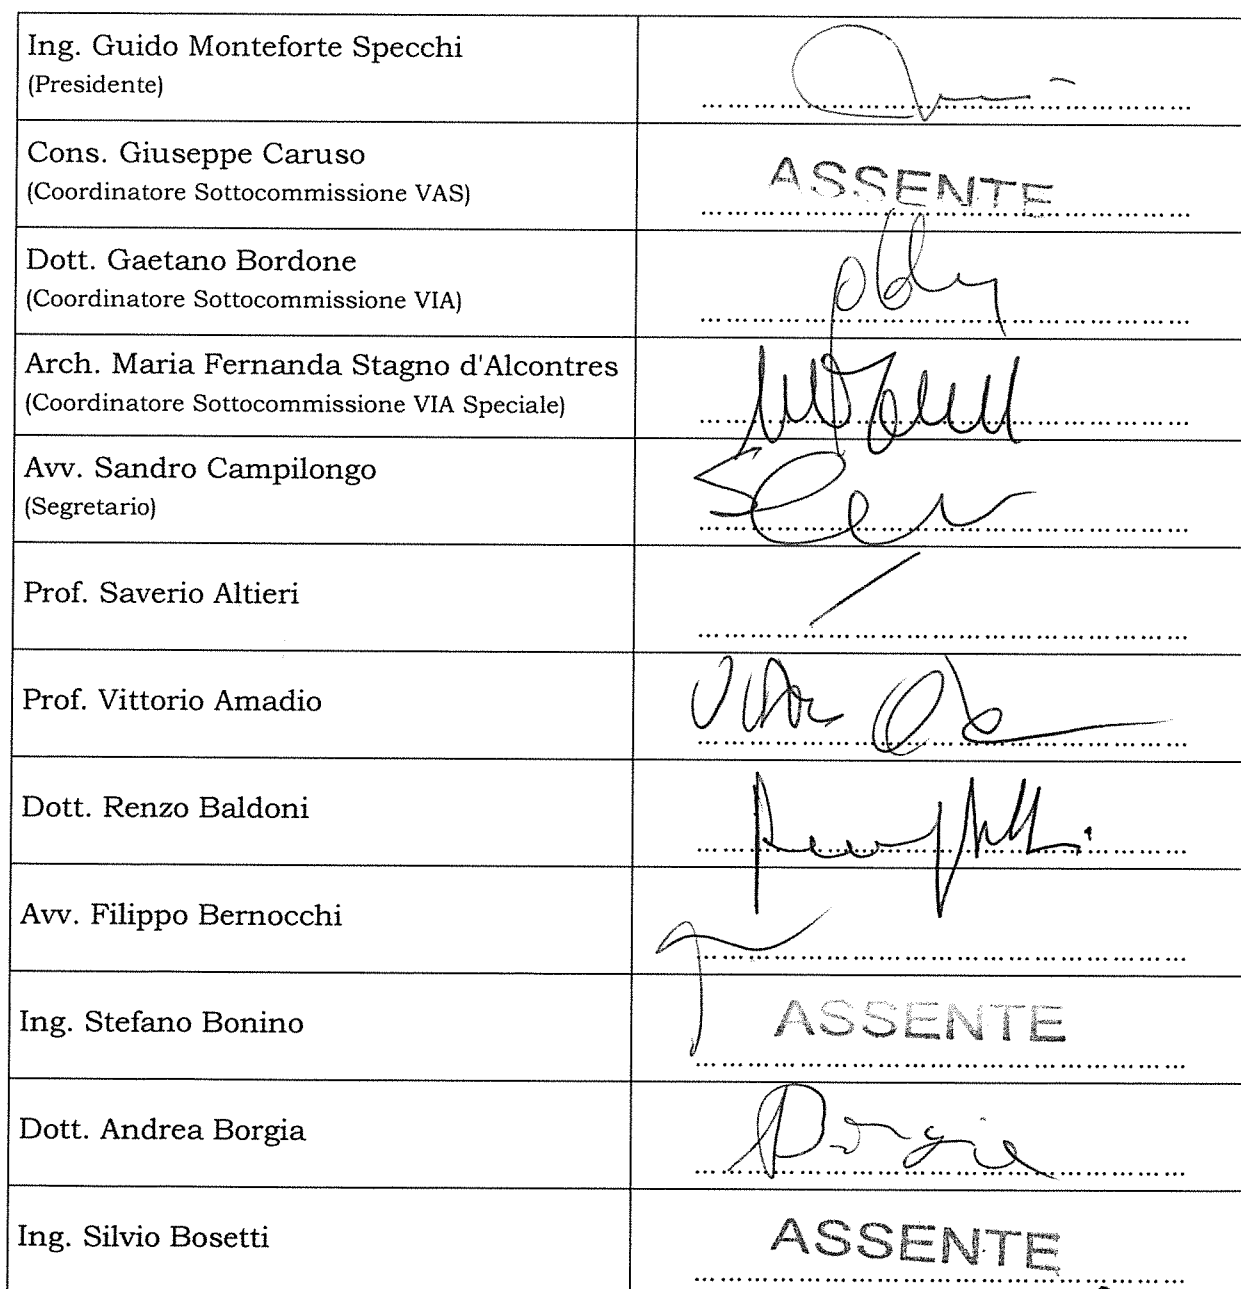 Ing. Guido Monteforte Specchi
(Presidente)
Cons. Giuseppe Caruso
(Coordinatore Sottocommissione VAS)
ASSENTE
Dott. Gaetano Bordone
(Coordinatore Sottocommissione VIA)
Arch. Maria Fernanda Stagno d'Alcontres
(Coordinatore Sottocommissione VIA Speciale)
Avv. Sandro Campilongo
(Segretario)
Prof. Saverio Altieri
Prof. Vittorio Amadio
Dott. Renzo Baldoni
Avv. Filippo Bernocchi
Ing. Stefano Bonino
ASSENTE
Dott. Andrea Borgia
Borgia
Ing. Silvio Bosetti
ASSENTE